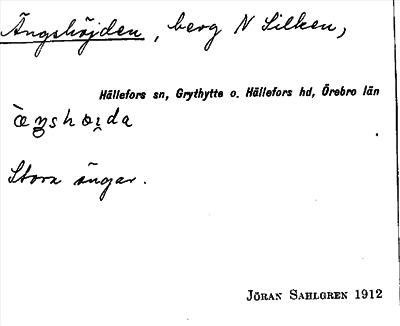 Ängshöjden, berg N Silken,
Hällefors sn, Grythytte o. Hällefors hd, Örebro län
Stora ängar.
JÖRAN SAHLGREN 1912